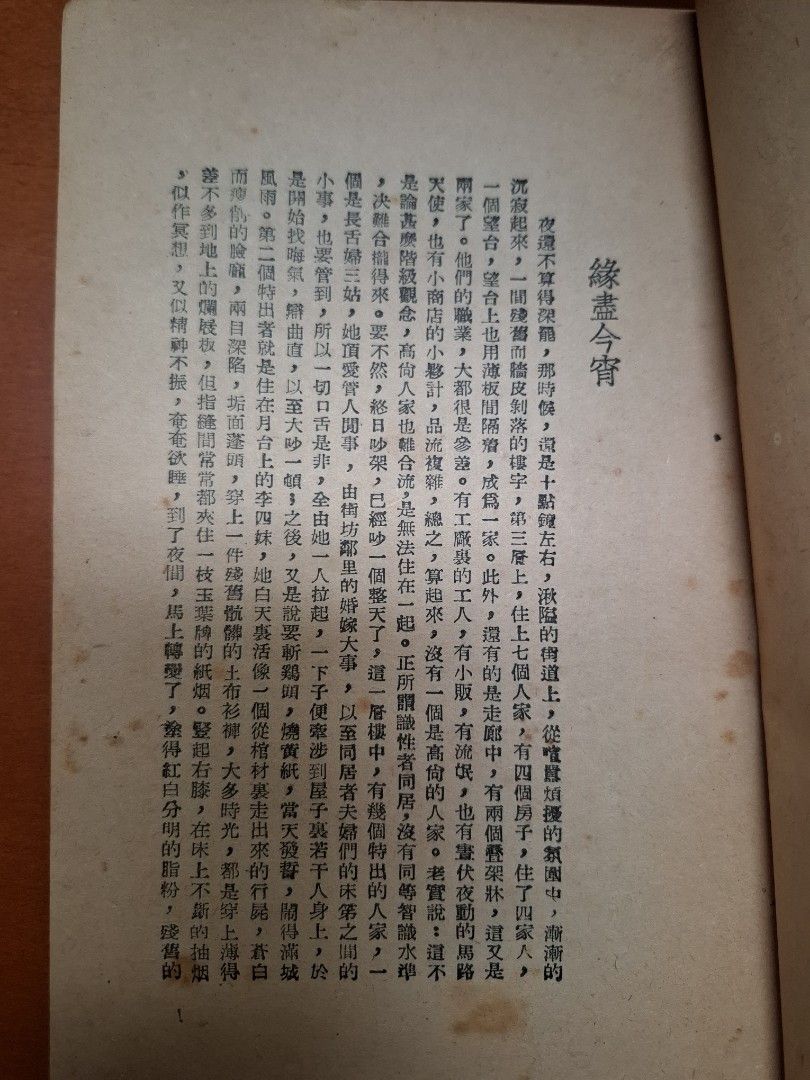 緣盡今宵
夜還不算得深罷，那時候，還是十點鐘左右，湫隘的街道上，從喧囂煩擾的氛圍中，漸漸的
沉寂起來，一間殘舊而牆皮剝落的樓宇，第三層上，住上七個人家，有四個房子，住了四家人，
一個望台，望台上也用薄板間隔着，成爲一家。此外，還有的是走廊中，有兩個叠架牀，這又是
兩家了。他們的職業，大都很是參差。有工廠裏的工人，有小販，有流氓，也有晝伏夜動的馬路
天使，也有小商店的小夥計，品流複雜，總之，算起來，沒有一個是高尙的人家。老實說：這不
是論甚麽階級觀念，高尙人家也難合流，是無法住在一起。正所謂識性者同居，沒有同等智識水準
，决難合攏得來。要不然，終日吵架，已經吵一個整天了，這一層樓中，有幾個特出的人家，一
個是長舌婦三姑，她頂愛管人閒事，由街坊鄰里的婚嫁大事，以至同居者夫婦們的床笫之間的
小事，也要管到，所以一切口舌是非，全由她一人拉起，一下子便牽涉到屋子裏若干人身上，於
是開始找晦氣，辯曲直，以至大吵一頓；之後，又是說要斬鷄頭，燒黃紙，當天發誓，鬧得滿城
風雨。第二個特出者就是住在月台上的李四妹，她白天裏活像一個從棺材裏走出來的行屍，蒼白
而瘦削的臉龐，兩目深陷，垢面蓬頭，穿上一件殘舊骯髒的土布衫褲，大多時光，都是穿上薄得
差不多到地上的爛屐板，但指縫間常常都夾住一枝玉葉牌的紙烟。竪起右膝，在床上不斷的抽烟
，似作冥想，又似精神不振，奄奄欲睡，到了夜間，馬上轉變了，塗得紅白分明的脂粉，殘舊的
1